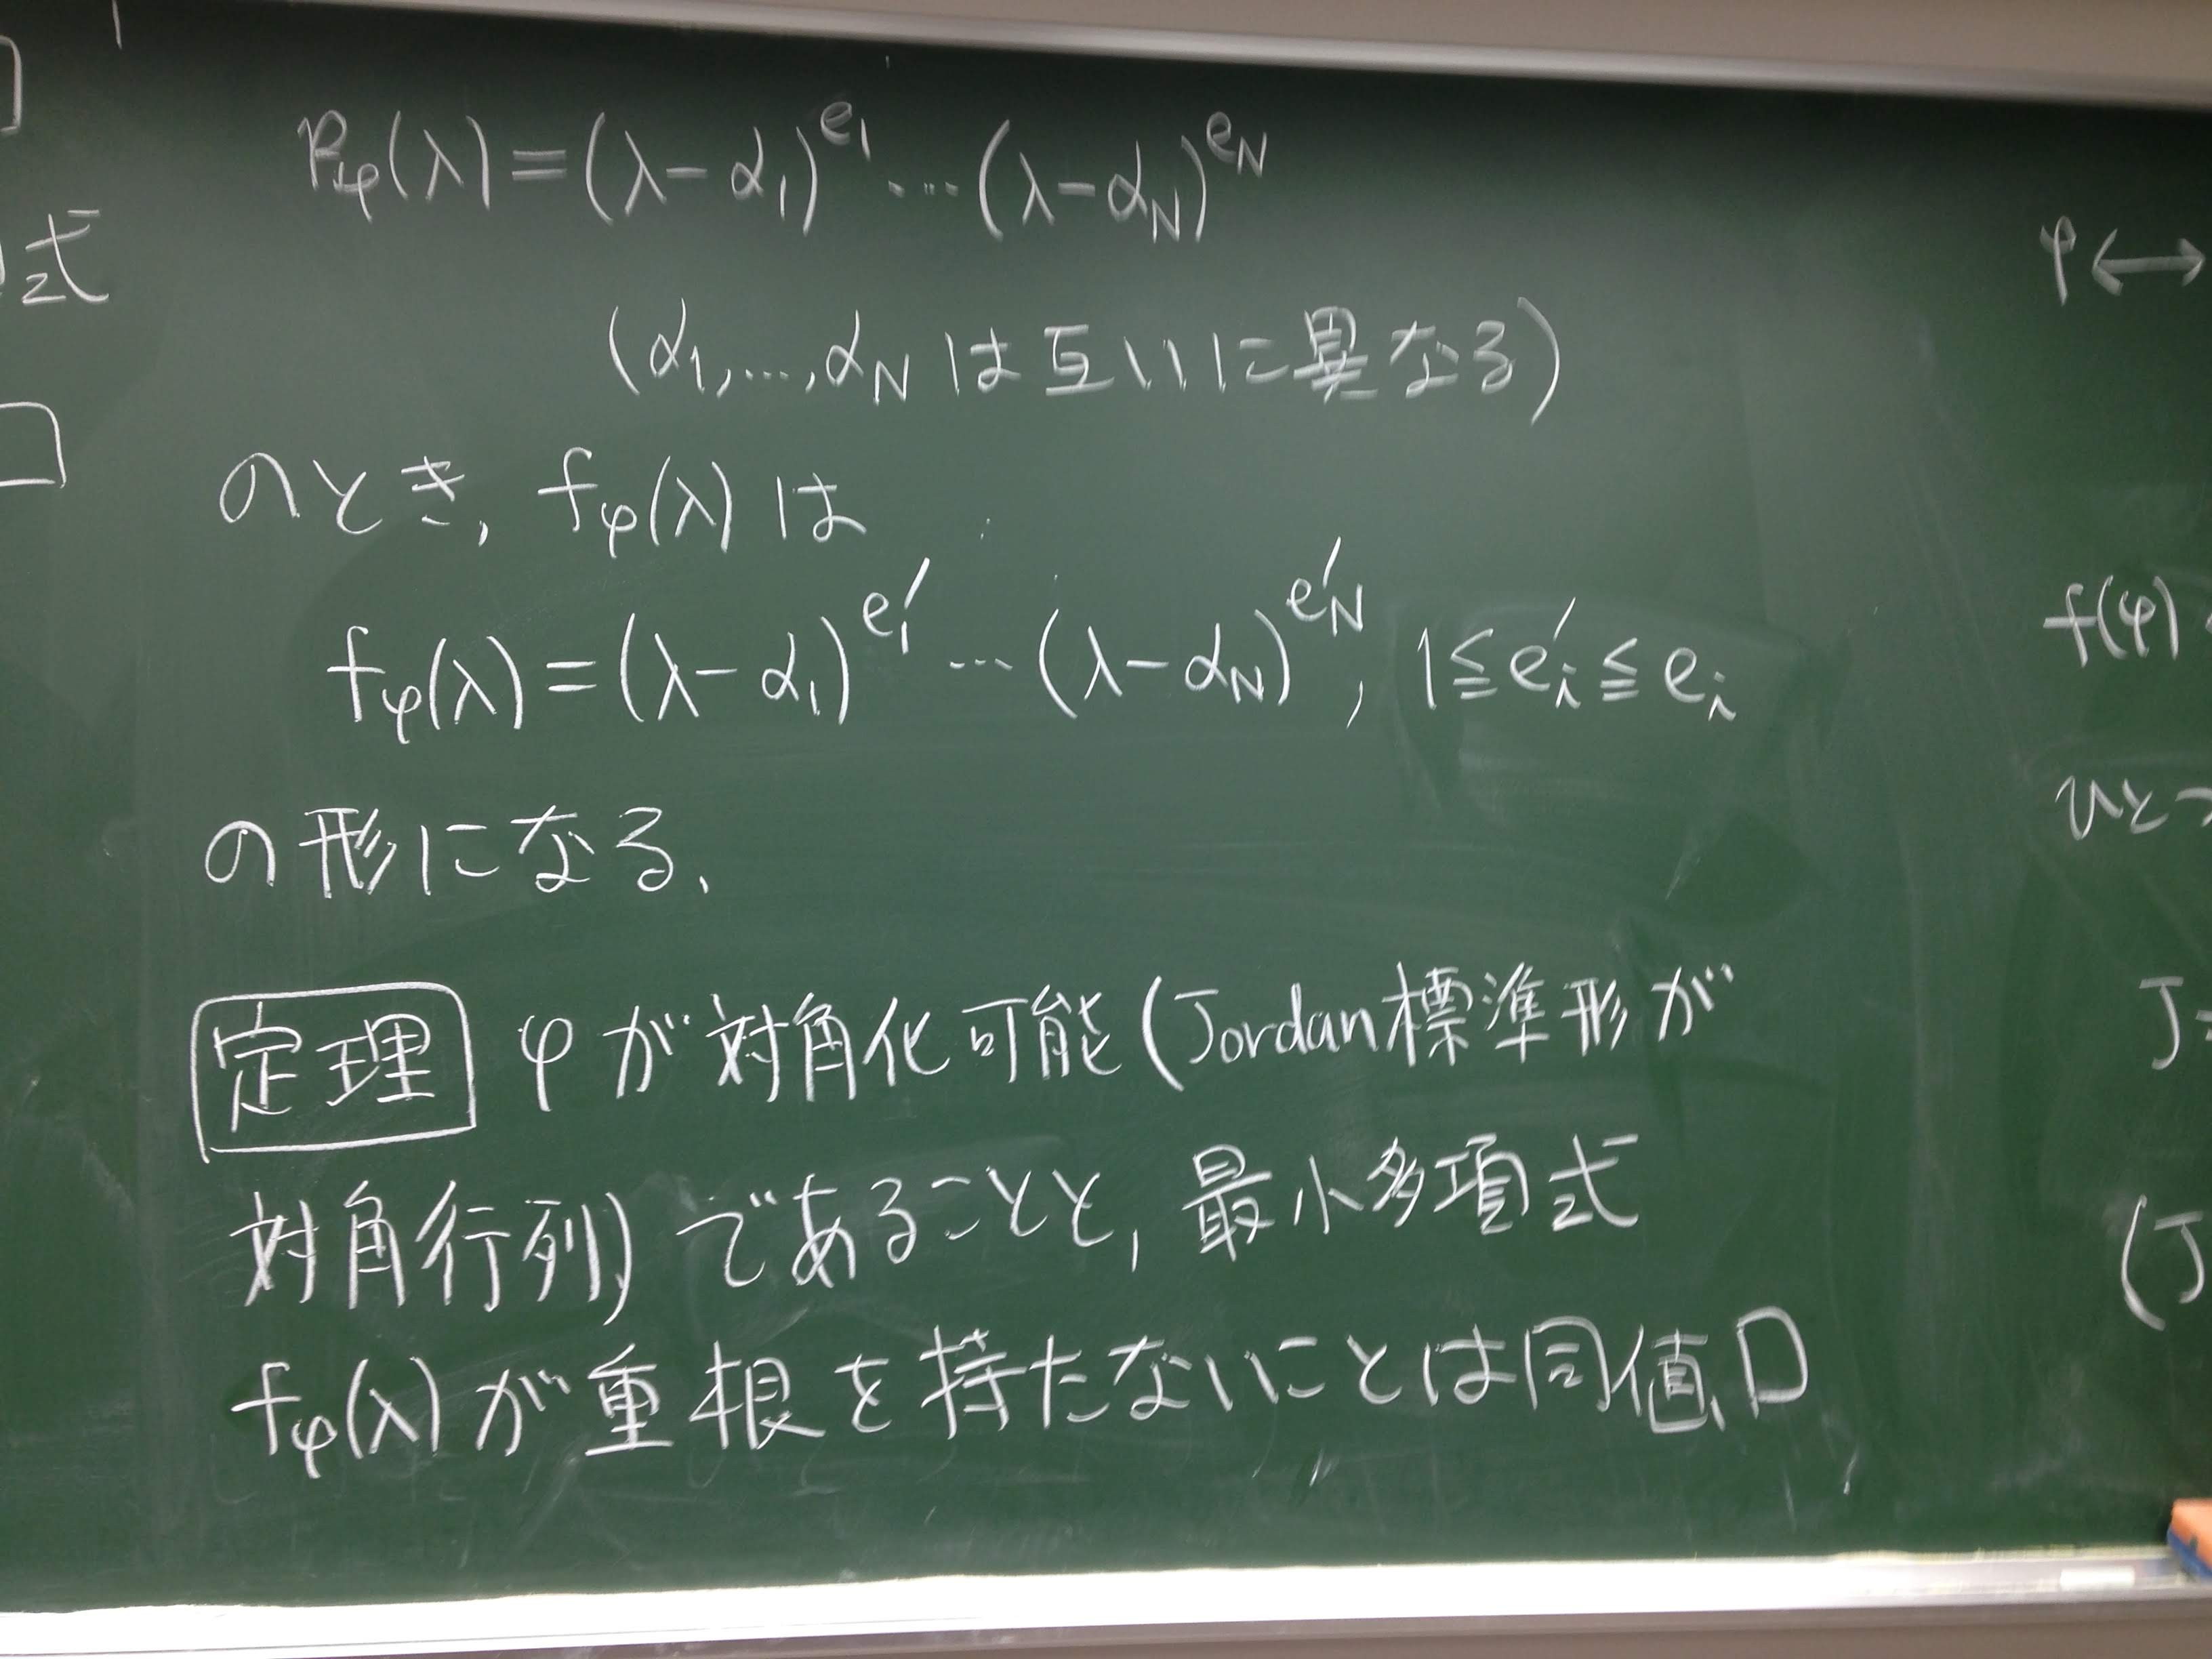 式
P_φ(λ)=(λ-α₁)^{e₁}…(λ-α_N)^{e_N}
(α₁,…,α_Nは互いに異なる)
のとき, f_φ(λ)は
f_φ(λ)=(λ-α₁)^{e₁'}…(λ-α_N)^{e'_N}, 1≦e'_i≦e_i
の形になる.
定理 φが対角化可能(Jordan標準形が
対角行列)であることと, 最小多項式
f_φ(λ)が重根を持たないことは同値. □
φ↔
f(φ)
ひとつ
J=
(J